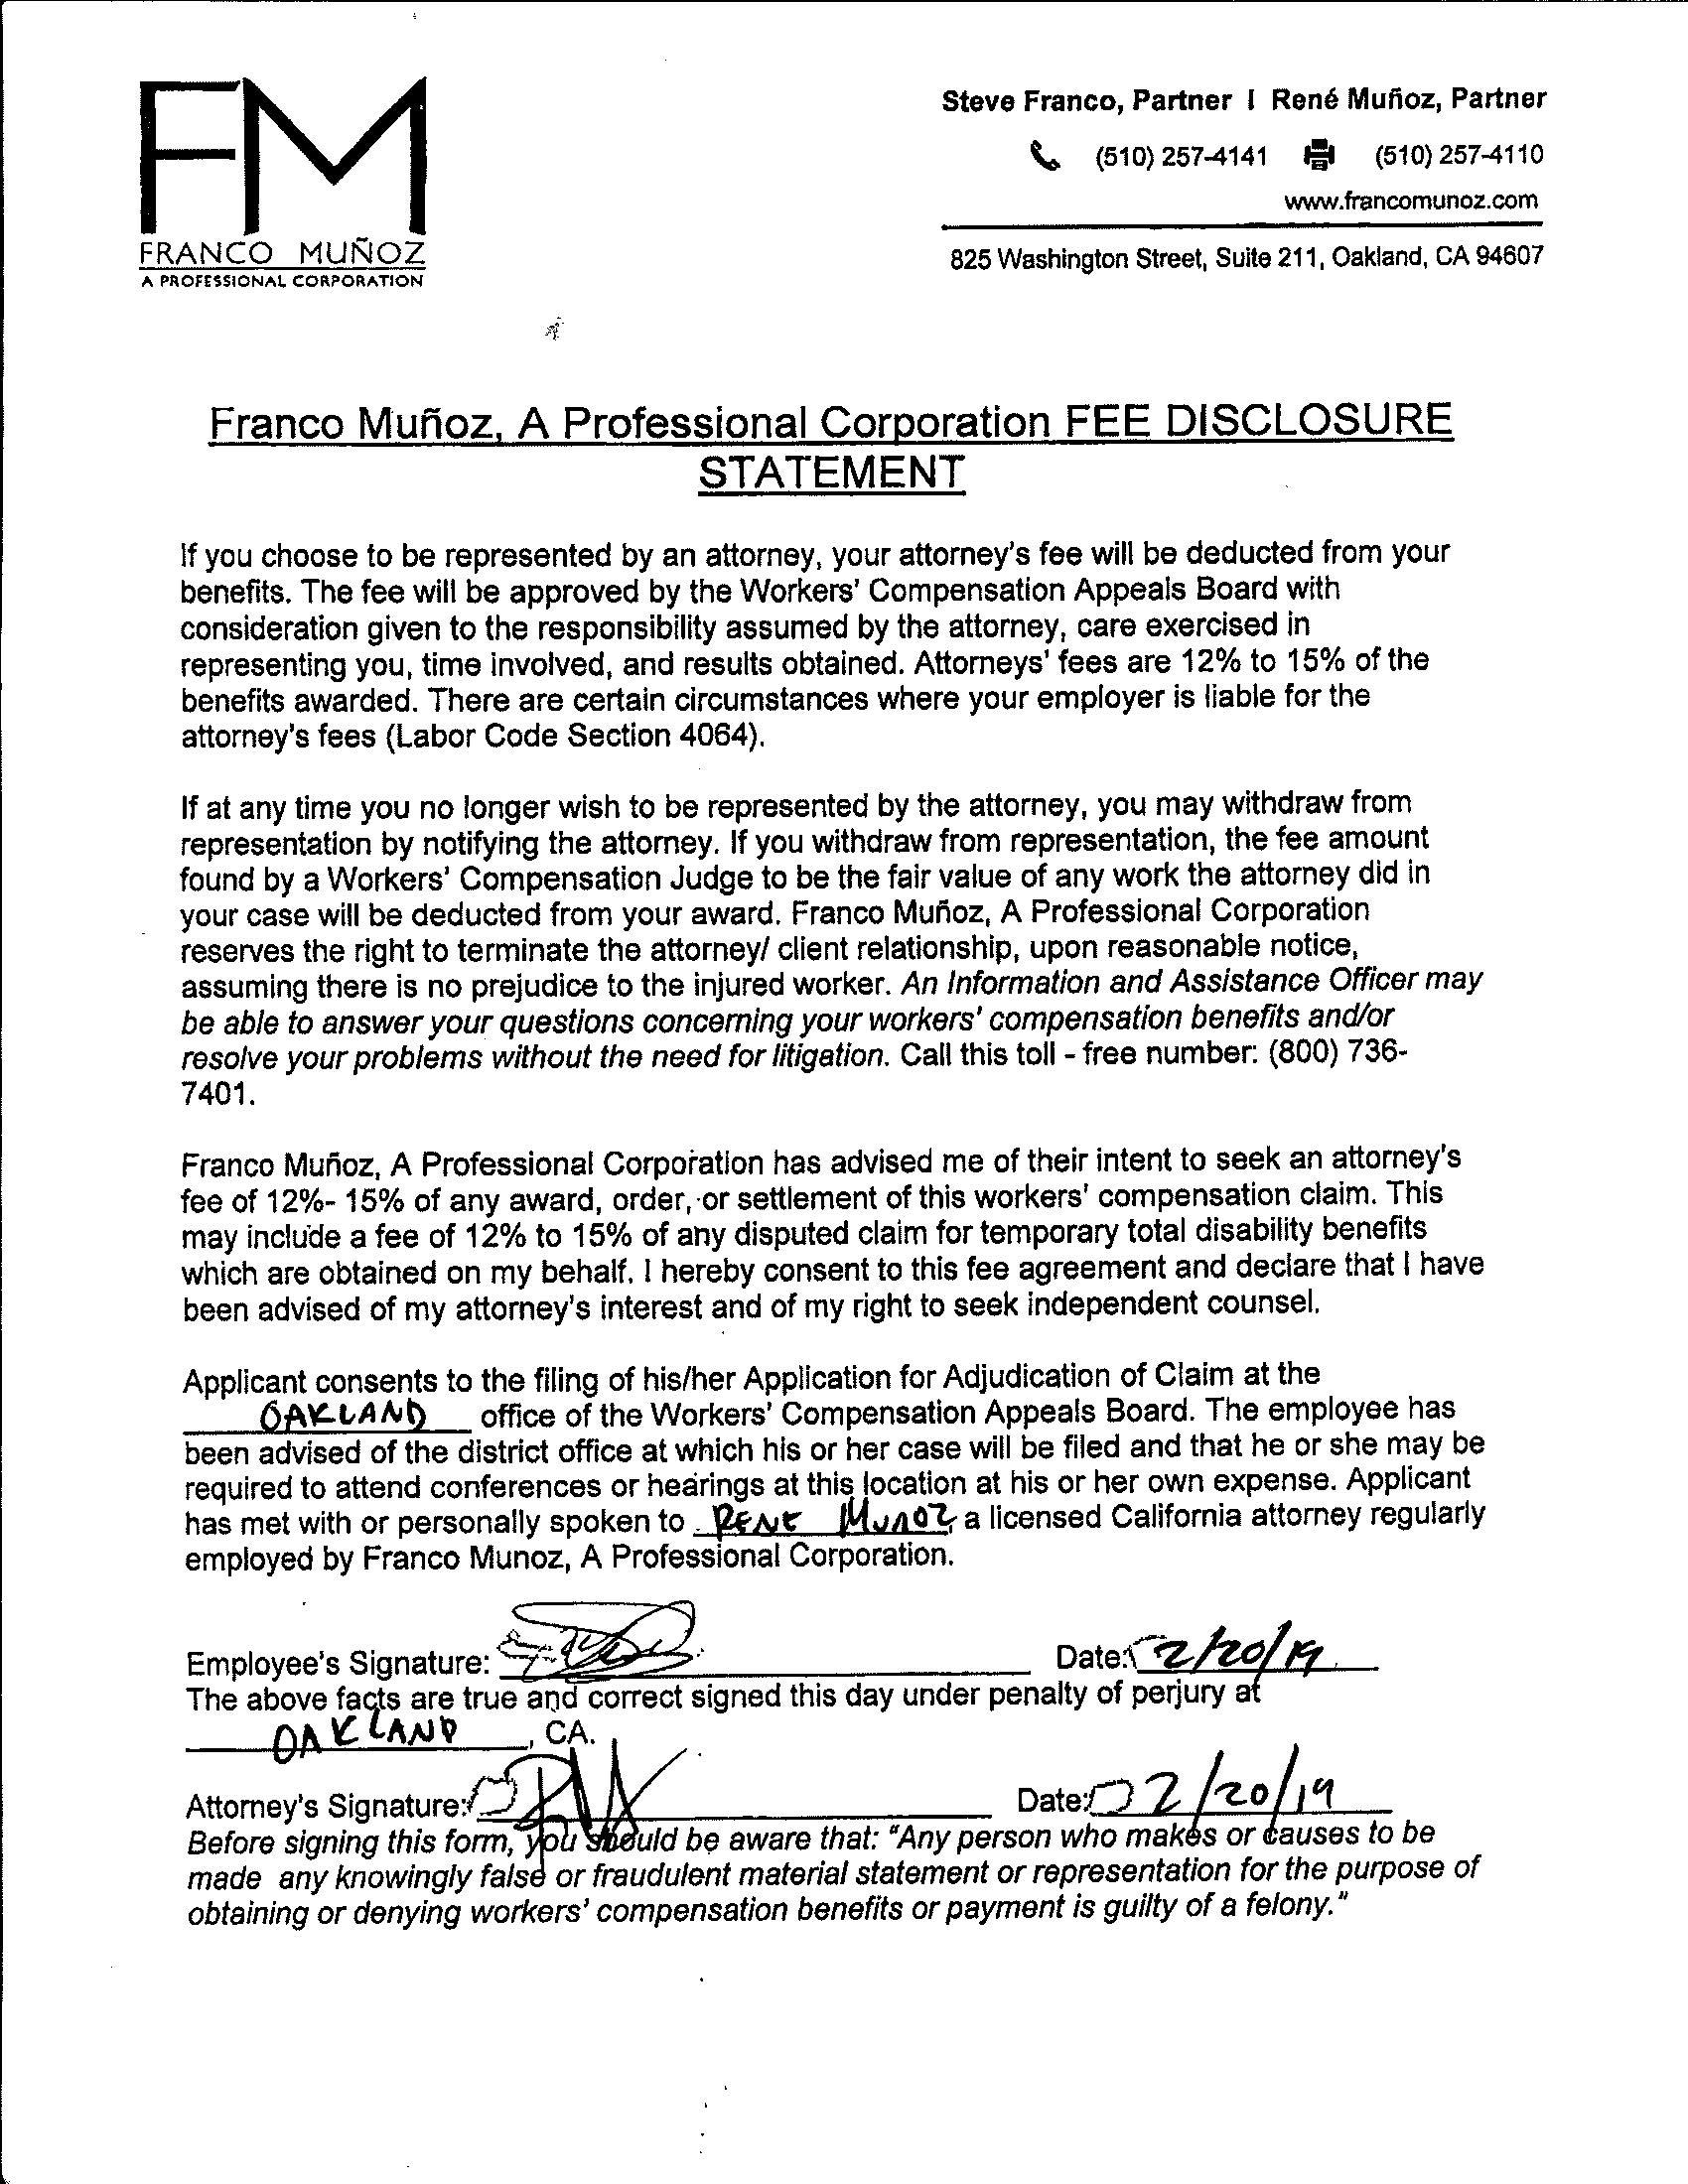 FM
FRANCO MUÑOZ
A PROFESSIONAL CORPORATION
Steve Franco, Partner | René Muñoz, Partner
(510) 257-4141 (510) 257-4110
www.francomunoz.com
825 Washington Street, Suite 211, Oakland, CA 94607
Franco Muñoz, A Professional Corporation FEE DISCLOSURE
STATEMENT
If you choose to be represented by an attorney, your attorney's fee will be deducted from your
benefits. The fee will be approved by the Workers' Compensation Appeals Board with
consideration given to the responsibility assumed by the attorney, care exercised in
representing you, time involved, and results obtained. Attorneys' fees are 12% to 15% of the
benefits awarded. There are certain circumstances where your employer is liable for the
attorney's fees (Labor Code Section 4064).
If at any time you no longer wish to be represented by the attorney, you may withdraw from
representation by notifying the attorney. If you withdraw from representation, the fee amount
found by a Workers' Compensation Judge to be the fair value of any work the attorney did in
your case will be deducted from your award. Franco Muñoz, A Professional Corporation
reserves the right to terminate the attorney/ client relationship, upon reasonable notice,
assuming there is no prejudice to the injured worker. An Information and Assistance Officer may
be able to answer your questions concerning your workers' compensation benefits and/or
resolve your problems without the need for litigation. Call this toll - free number: (800) 736-
7401.
Franco Muñoz, A Professional Corporation has advised me of their intent to seek an attorney's
fee of 12%- 15% of any award, order, or settlement of this workers' compensation claim. This
may include a fee of 12% to 15% of any disputed claim for temporary total disability benefits
which are obtained on my behalf. I hereby consent to this fee agreement and declare that I have
been advised of my attorney's interest and of my right to seek independent counsel.
Applicant consents to the filing of his/her Application for Adjudication of Claim at the
OAKLAND office of the Workers' Compensation Appeals Board. The employee has
been advised of the district office at which his or her case will be filed and that he or she may be
required to attend conferences or hearings at this location at his or her own expense. Applicant
has met with or personally spoken to RENE MUNOZ, a licensed California attorney regularly
employed by Franco Munoz, A Professional Corporation.
Employee's Signature: Date: 2/20/19
The above facts are true and correct signed this day under penalty of perjury at
OAKLAND, CA.
Attorney's Signature: Date: 2/20/19
Before signing this form, you should be aware that: "Any person who makes or causes to be
made any knowingly false or fraudulent material statement or representation for the purpose of
obtaining or denying workers' compensation benefits or payment is guilty of a felony."